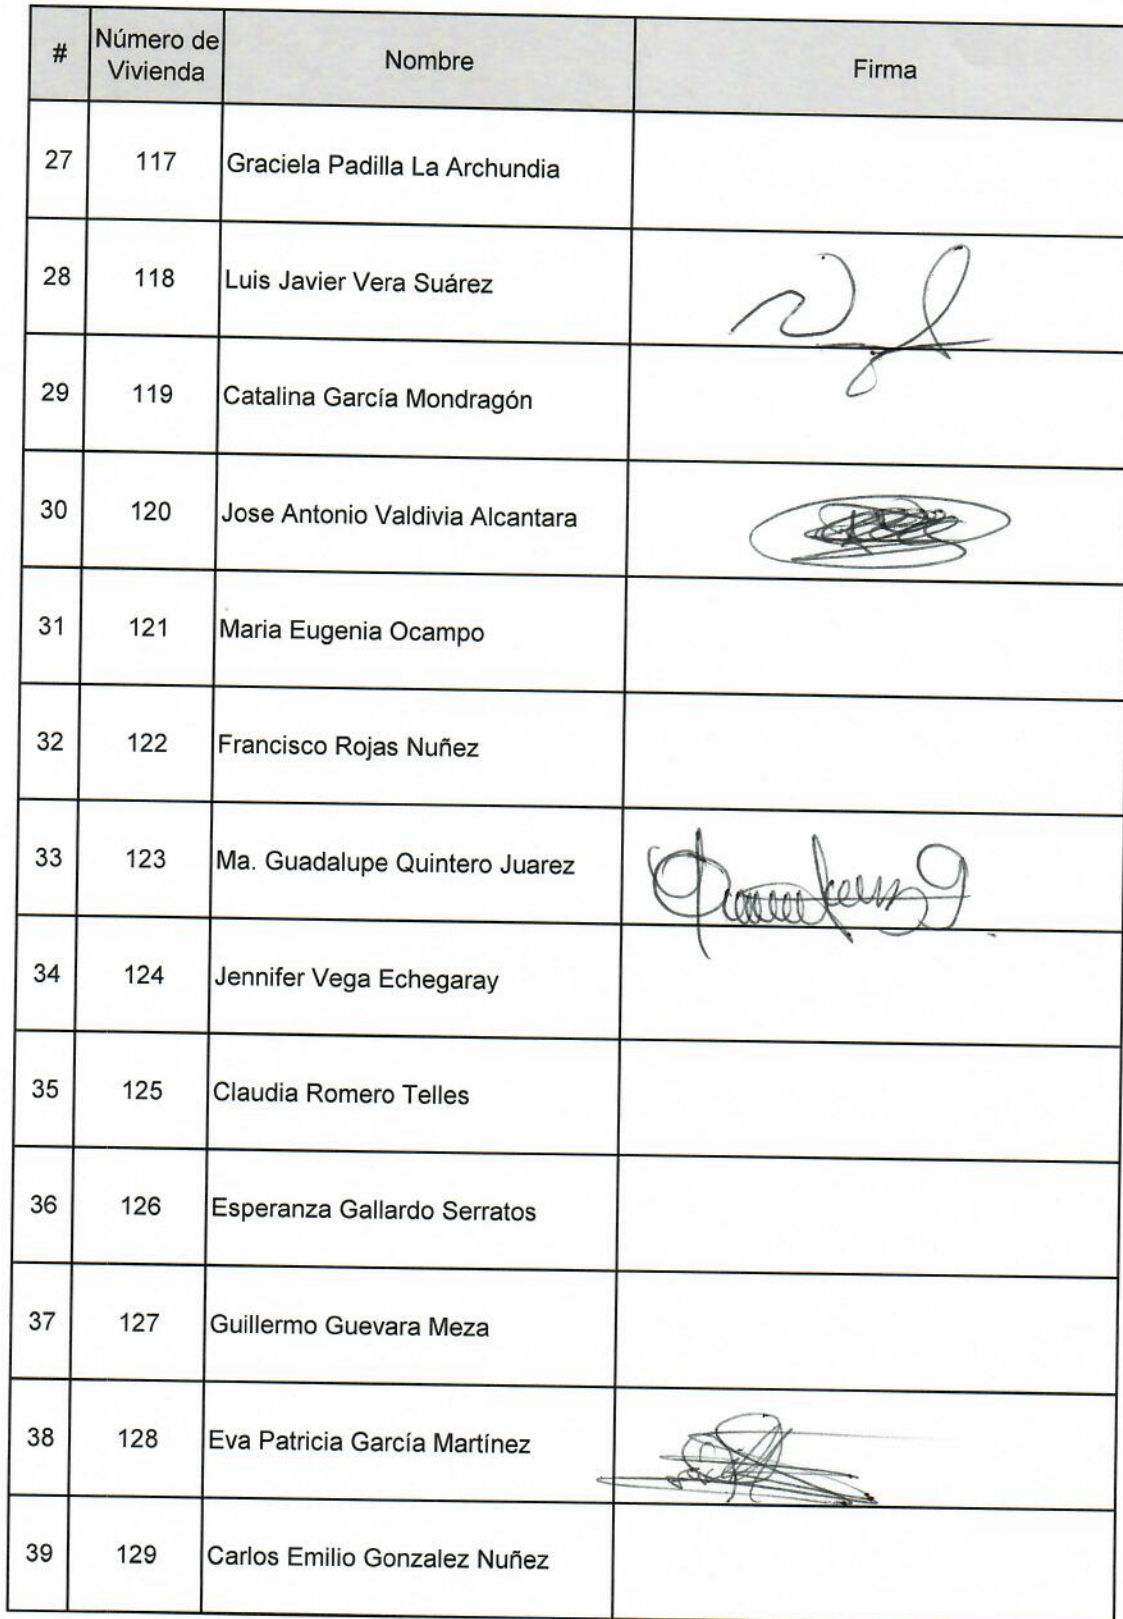 # Número de Vivienda Nombre Firma
27 117 Graciela Padilla La Archundia
28 118 Luis Javier Vera Suárez
29 119 Catalina García Mondragón
30 120 Jose Antonio Valdivia Alcantara
31 121 Maria Eugenia Ocampo
32 122 Francisco Rojas Nuñez
33 123 Ma. Guadalupe Quintero Juarez
34 124 Jennifer Vega Echegaray
35 125 Claudia Romero Telles
36 126 Esperanza Gallardo Serratos
37 127 Guillermo Guevara Meza
38 128 Eva Patricia García Martínez
39 129 Carlos Emilio Gonzalez Nuñez